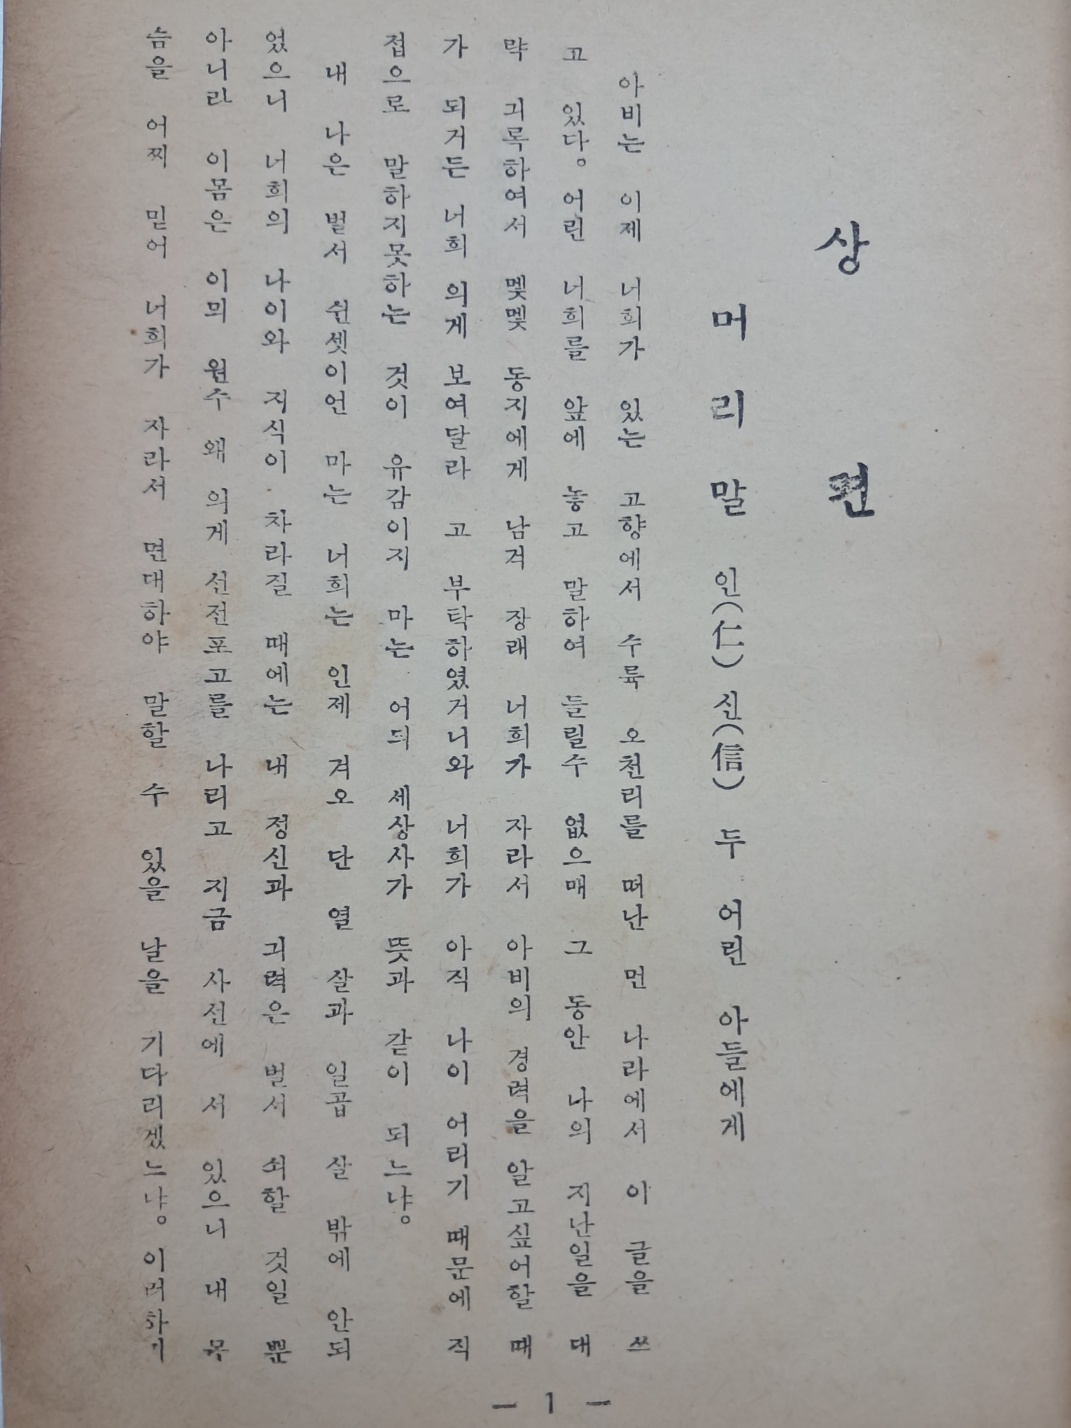 상편
머리말 인(仁)신(信) 두 어린 아들에게
아비는 이제 너희가 있는 고향에서 수륙 오천리를 떠난 먼 나라에서 이 글을 쓰
고 있다。어린 너희를 앞에 놓고 말하여 들릴수 없으매 그 동안 나의 지난일을 대
략 긔록하여서 몇몇 동지에게 남겨 장래 너희가 자라서 아비의 경력을 알고싶어할 때
가 되거든 너희 의게 보여달라 고 부탁하였거니와 너희가 아직 나이 어리기 때문에 직
접으로 말하지못하는 것이 유감이지 마는 어듸 세상사가 뜻과 같이 되느냐。
내 나은 벌서 쉰셋이언 마는 너희는 인제 겨오 단 열 살과 일곱 살 밖에 안되
었으니 너희의 나이와 지식이 차라질 때에는 내 정신과 긔력은 벌서 쇠할 것일 뿐
아니라 이몸은 이믜 원수 왜 의게 선전포고를 나리고 지금 사선에 서 있으니 내 목
슴을 어찌 믿어 너희가 자라서 면대하야 말할 수 있을 날을 기다리겠느냐。이러하기
— 1 —